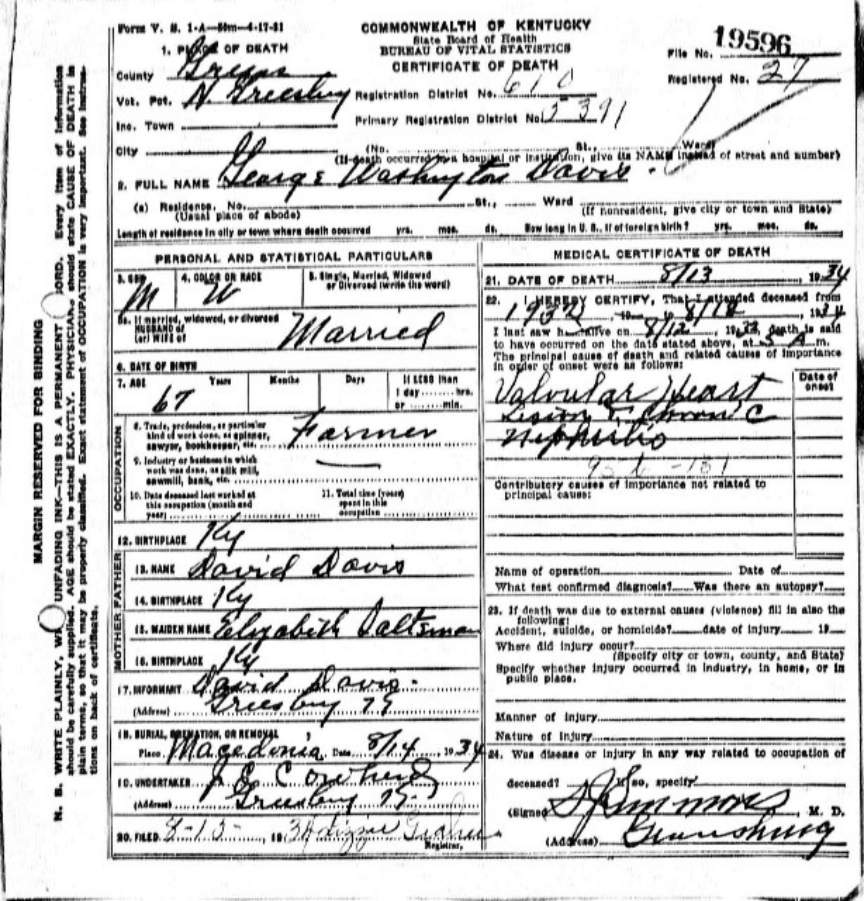 Form V. S. 1-A—50m-4-17-31
COMMONWEALTH OF KENTUCKY
State Board of Health
BUREAU OF VITAL STATISTICS
CERTIFICATE OF DEATH
File No. 19596
Registered No. 27
1. PLACE OF DEATH
County Green
Vot. Pct. N. Greesburg
Registration District No. 610
Inc. Town
Primary Registration District No. 5391
City (No. St., Ward)
(If death occurred in a hospital or institution, give its NAME instead of street and number)
2. FULL NAME George Washington Davis
(a) Residence, No. St., Ward
(Usual place of abode) (If nonresident, give city or town and State)
Length of residence in city or town where death occurred yrs. mos. ds. How long in U. S., if of foreign birth? yrs. mos. ds.
PERSONAL AND STATISTICAL PARTICULARS
3. SEX M
4. COLOR OR RACE W
5. Single, Married, Widowed
or Divorced (write the word)
5a. If married, widowed, or divorced
HUSBAND of
(or) WIFE of
Married
6. DATE OF BIRTH
7. AGE Years Months Days If LESS than
1 day hrs.
or min.
67
OCCUPATION
8. Trade, profession, or particular
kind of work done, as spinner,
sawyer, bookkeeper, etc. Farmer
9. Industry or business in which
work was done, as silk mill,
sawmill, bank, etc.
10. Date deceased last worked at
this occupation (month and
year)
11. Total time (years)
spent in this
occupation
12. BIRTHPLACE Ky
FATHER
13. NAME David Davis
14. BIRTHPLACE Ky
MOTHER
15. MAIDEN NAME Elizabeth Saltsman
16. BIRTHPLACE Ky
17. INFORMANT David Davis
(Address) Griesburg Ky
18. BURIAL, CREMATION, OR REMOVAL
Place Macedonia Date 8/14, 1934
19. UNDERTAKER Cowherd
(Address) Griesburg Ky
20. FILED 8-15-, 1934 Lizzie
Registrar.
MEDICAL CERTIFICATE OF DEATH
21. DATE OF DEATH 8/13 1934
22. I HEREBY CERTIFY, That I attended deceased from
1932, 19 to 8/12, 1934
I last saw h alive on 8/12, 19 death is said
to have occurred on the date stated above, at 5 A m.
The principal cause of death and related causes of importance
in order of onset were as follows:
Date of
onset
Valvular Heart
Lesion & Chronic
Nephritis
Contributory causes of importance not related to
principal cause:
Name of operation Date of
What test confirmed diagnosis? Was there an autopsy?
23. If death was due to external causes (violence) fill in also the
following:
Accident, suicide, or homicide? date of injury 19
Where did injury occur?
(Specify city or town, county, and State)
Specify whether injury occurred in industry, in home, or in
public place.
Manner of injury
Nature of injury
24. Was disease or injury in any way related to occupation of
deceased? If so, specify
(Signed) S J Simmons, M. D.
(Address) Greensburg
MARGIN RESERVED FOR BINDING
N. B. WRITE PLAINLY, WITH UNFADING INK—THIS IS A PERMANENT RECORD. Every item of information
should be carefully supplied. AGE should be stated EXACTLY. PHYSICIANS should state CAUSE OF DEATH in
plain terms, so that it may be properly classified. Exact statement of OCCUPATION is very important. See instruc-
tions on back of certificate.